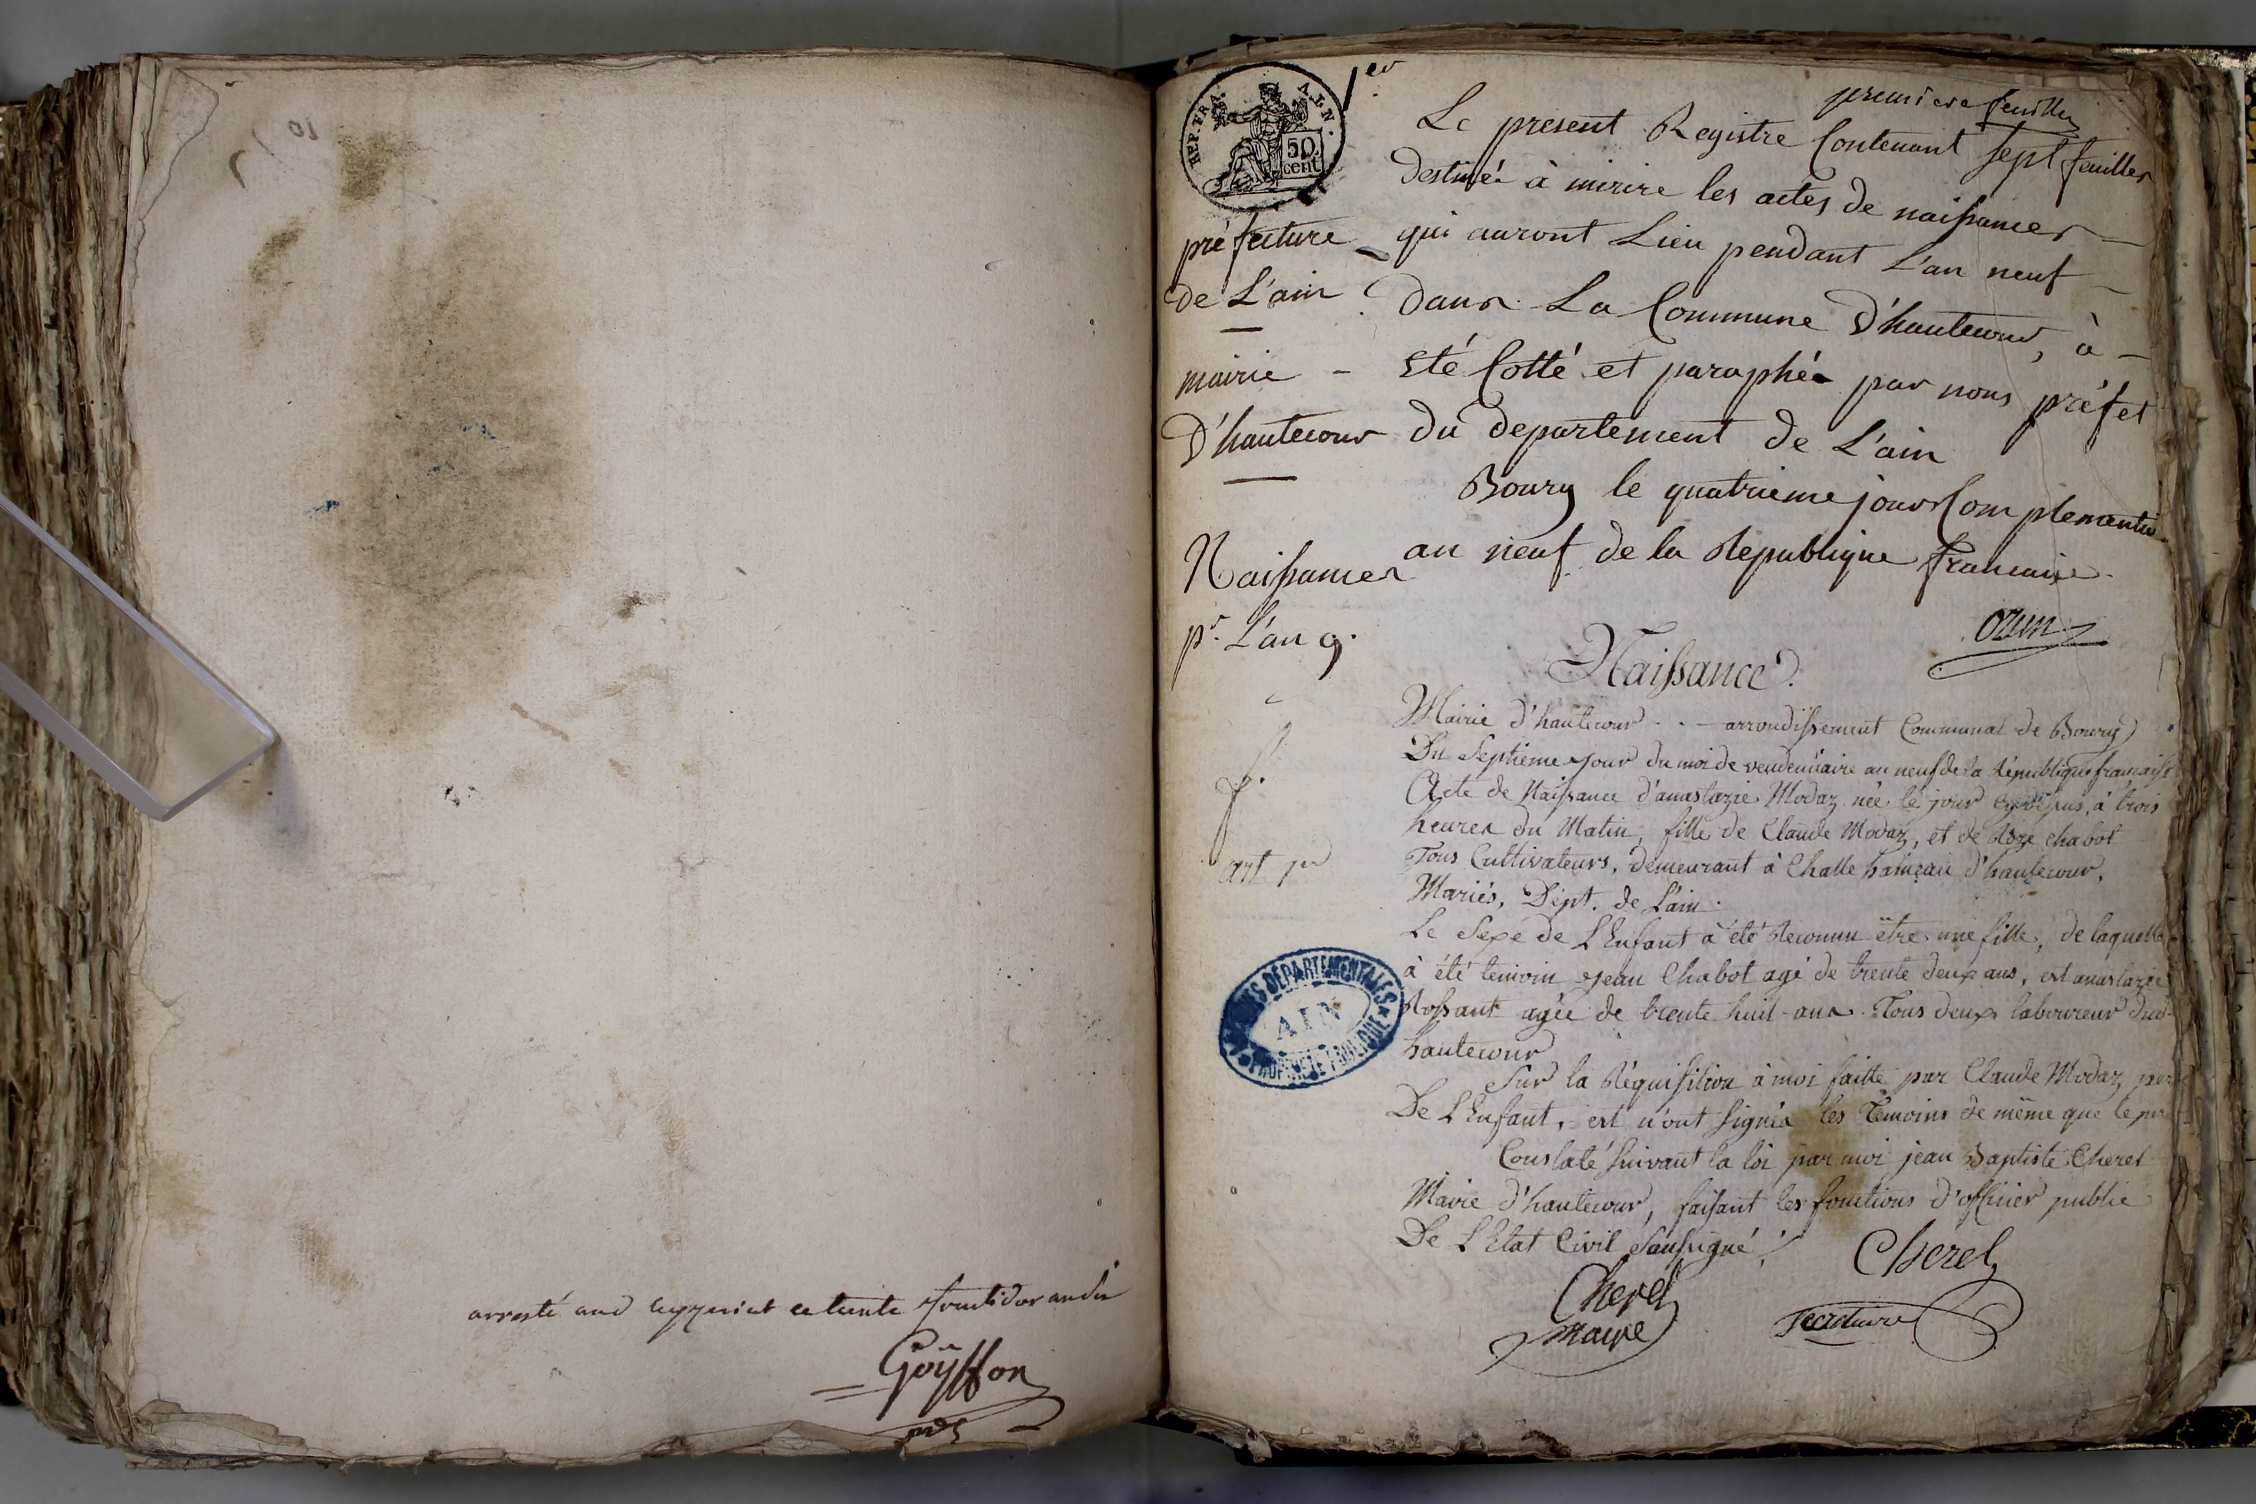 arresté
Goÿffon
REP. FRA.
50
cent
1er
première feuille
préfecture
de L'ain
mairie
D'hautecour
Naissances
pr. L'an 9.
Le présent Registre Contenant sept feuilles
destinée à inscrire les actes de naissances
qui auront Lieu pendant L'an neuf
dans La Commune D'hautecour, à
été Cotté et paraphée par nous préfet
du departement de L'ain
Bourg le quatrieme jour Complementre
an neuf de la Republique francaise.
ozun
Naissance.
f.
art 1er
Mairie d'hautecour - arrondissement Communal de Bourg
Du Septième Jour du moi de vendemiaire an neuf de la République française
Acte de Naissance d'anastazie Modaz née le jour à trois
heures du Matin, fille de Claude Modaz, et de Roze chabot
Tous Cultivateurs, demeurant à Challe hameau d'hautecour,
Mariés, Dépt. de L'ain.
Le Sexe de L'Enfant à été Reconnu être une fille, de laquelle
à été temoin Jean Chabot agé de trente deux ans, est anastazie
Rossant agée de trente huit ans. Tous deux laboureur dud.
hautecour
Sur la Réquisition à moi faitte par Claude Modaz, père
De L'Enfant, est n'ont signés les Temoins de même que le père
Constaté suivant la loi par moi jean Baptiste Cherel
Maire d'hautecour, faisant les fonctions d'officier public
De L'Etat Civil Soussigné
Cherel
Maire
Cherel
Secretaire
ARCHIVES DEPARTEMENTALES
AIN
PROPRIETE PUBLIQUE